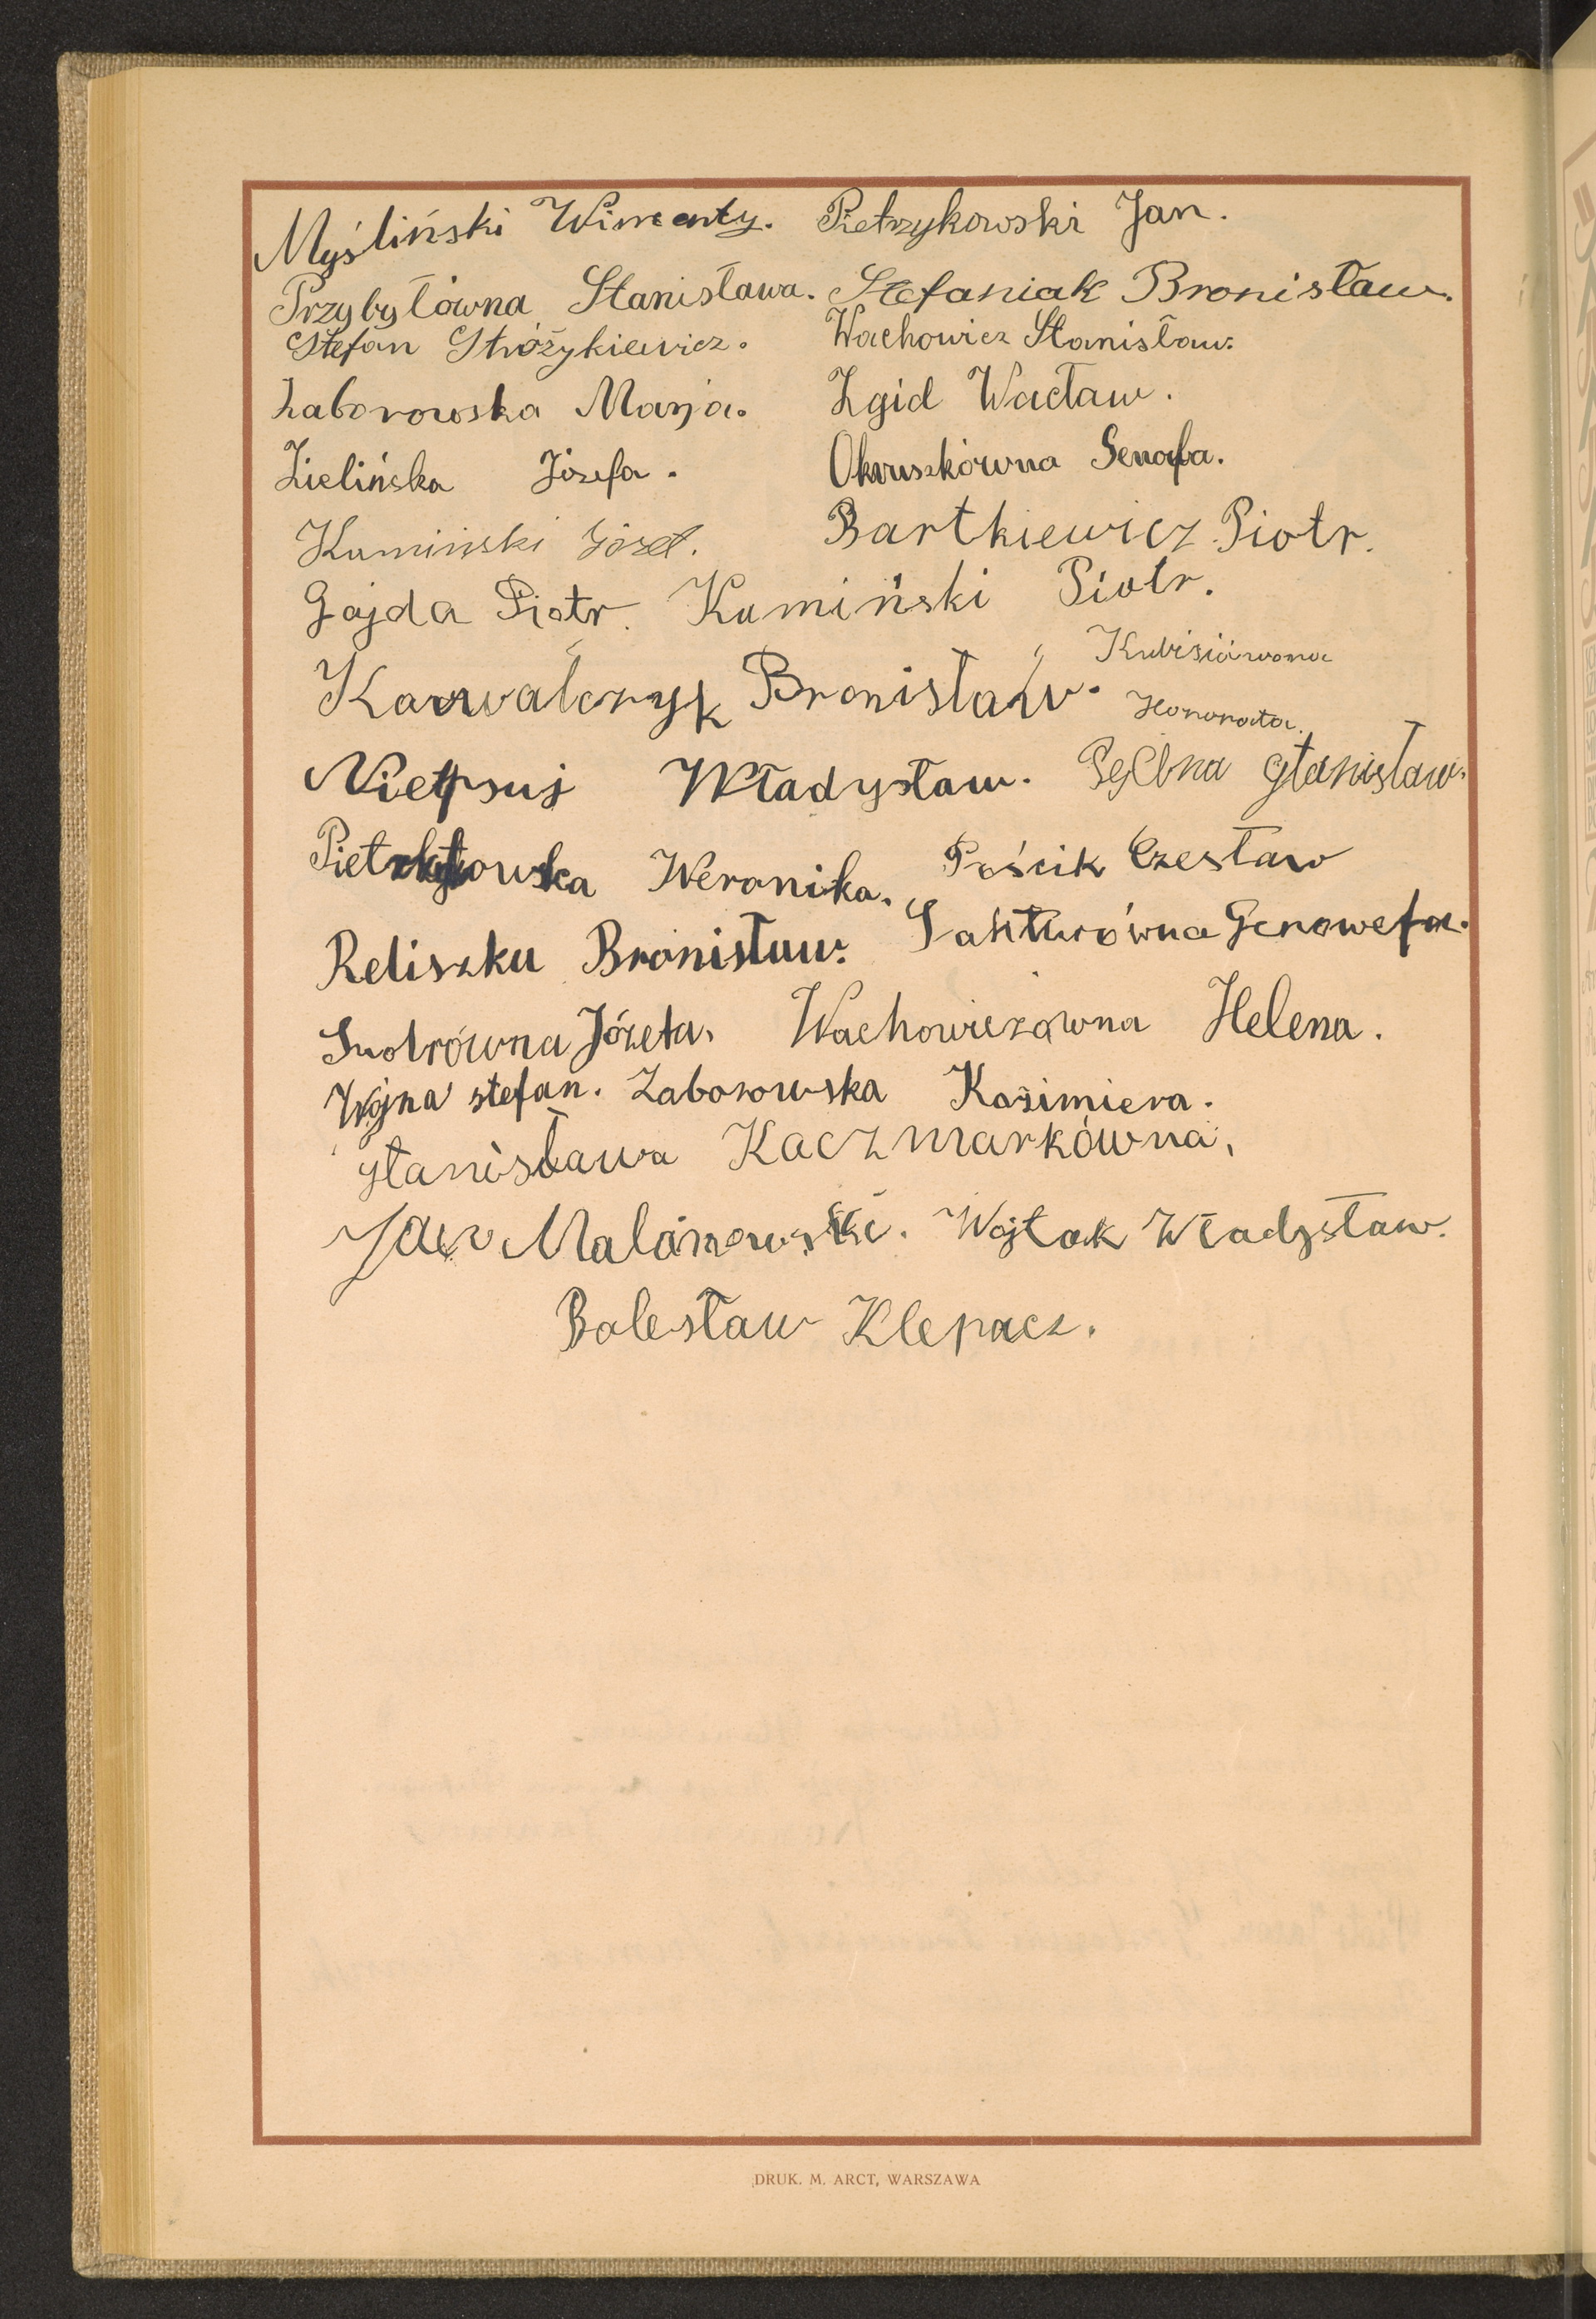 Myśliński Wincenty. Pietrzykowski Jan.
Przybyłówna Stanisława. Stefaniak Bronisław.
Stefan Stróżykiewicz. Wachowicz Stanisław.
Zaborowska Marja. Zgid Wacław.
Zielińska Józefa. Okruszkówna Senafa.
Kamiński Józef. Bartkiewicz Piotr.
Gajda Piotr. Kamiński Piotr.
Kubisiówna
Kowalczyk Bronisław.
Honorata.
Niepsuj Władysław. Stanisław.
Weronika. Pościk Czesław
Reliszka Bronisław. Genowefa.
Józefa. Wachowiczówna Helena.
Wojna stefan. Zaborowska Kazimiera.
Stanisława Kaczmarkówna,
Jan Malanowski. Wojtak Władysław.
Bolesław Klepacz.
DRUK. M. ARCT, WARSZAWA